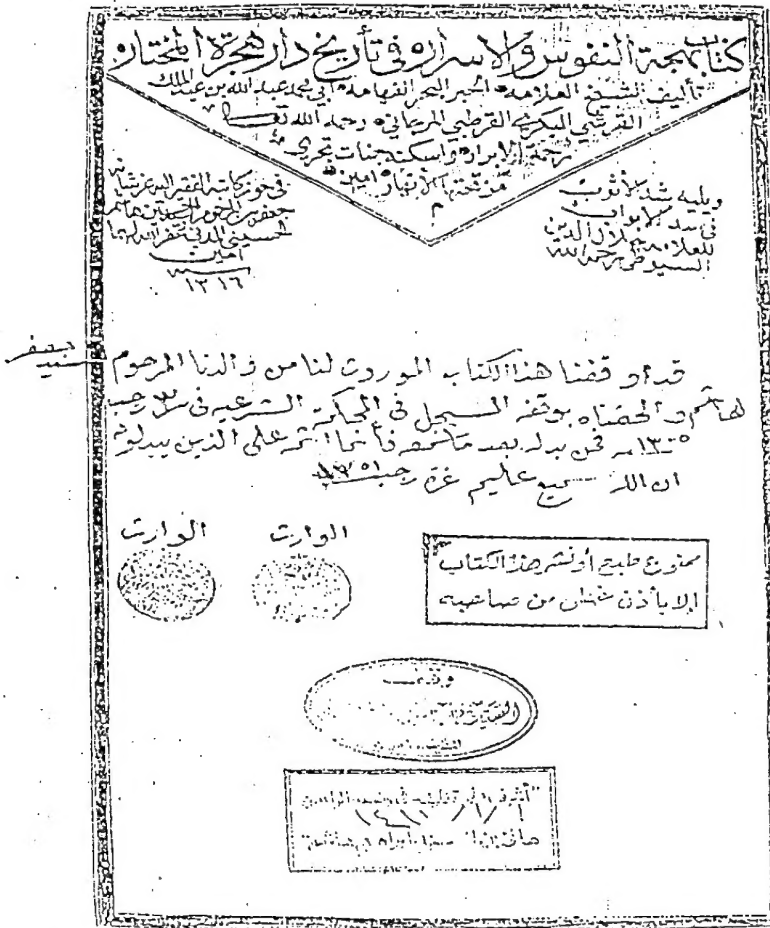 كتاب بهجة النفوس والاسرار في تأريخ دار هجرة المختار
تأليف الشيخ العلامة الحبر البحر الفهامة أبي محمد عبد الله بن عبد الملك
القرشي البكري القرطبي المرجاني رحمه الله تعالى
رحمة الابرار واسكنه جنات تجري
من تحتها الأنهار امين
م
ويليه شد الأثواب
في سد الابواب
للعلامة جلال الدين
السيوطي رحمه الله
في حوز كاتبه الفقير اليه عز شانه
جعفر بن المرحوم السيد حسين هاشم
الحسيني المدني غفر الله لهما
امين
سنة
١٣١٦
قد اوقفنا هذا الكتاب الموروث لنا من والدنا المرحوم
سيد جعفر
هاشم والحقناه بوقفه المسجل في المحكمة الشرعية في رجب
فمن بدله بعد ما سمعه فأنما اثمه على الذين يبدلونه
ان الله سميع عليم غرة رجب
الوارث
الوارث
ممنوع طبع أو نشر هذا الكتاب
إلا بأذن من صاحبه
وقف